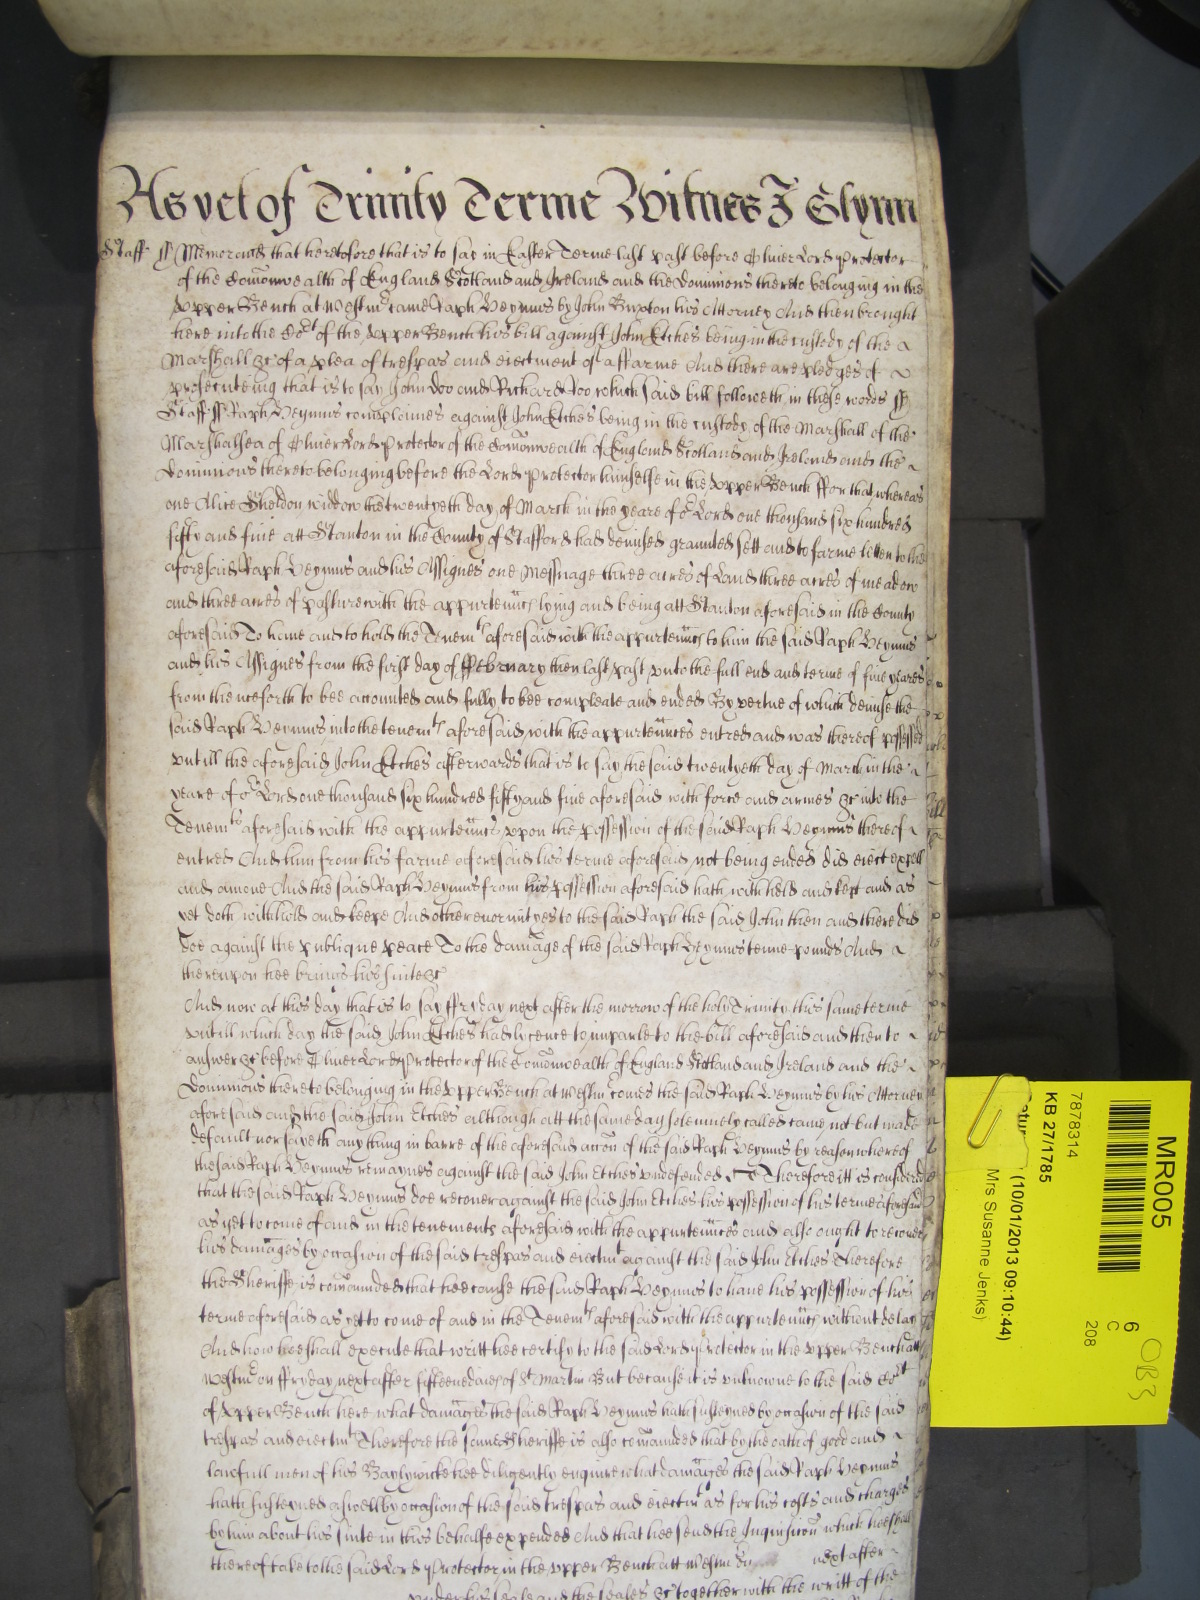 As yet of Trinity Terme Witnes J Glynn
Staff ss Memorand that heretofore that is to say in Easter Terme last past before Oliver Lord Protector
of the Comonwealth of England Scotland and Ireland and the Dominions thereto belonging in the
Upper Bench at Westmr came Raph Weymus by John Buxton his Attorney And then brought
here into the Cort of the Upper Bench his bill against John Etches being in the custody of the
Marshall &c of a plea of trespas and eiectment of a ffarme And there are pledges of
prosecuteing that is to say John Doo and Richard Roo which said bill followeth in these words ss
Staff ss Raph Weymus complaines against John Etches being in the custody of the Marshall of the
Marshalsea of Oliver Lord Protector of the Comonwealth of England Scotland and Ireland and the
Dominions thereto belonging before the Lord Protector himselfe in the Upper Bench ffor that whereas
one Alice Sheldon widdow the twentyeth day of March in the yeare of or Lord one thousand six hundred
fifty and five att Stanton in the County of Stafford had demised graunted sett and to farme letten to the
aforesaid Raph Weymus and his Assignes one Messuage three acres of Land three acres of meadow
and three acres of pasture with the appurtenncs lying and being att Stanton aforesaid in the County
aforesaid To have and to hold the Tenemts aforesaid with the appurtenncs to him the said Raph Weymus
and his Assignes from the first day of ffebruary then last past unto the full end and terme of five yeares
from thenceforth to bee accounted and fully to bee compleate and ended By vertue of which demise the
said Raph Weymus into the tenemts aforesaid with the appurtennces entred and was thereof possessed
untill the aforesaid John Etches afterwards that is to say the said twentyeth day of March in the
yeare of or Lord one thousand six hundred fifty and five aforesaid with force and armes &c into the
Tenemts aforesaid with the appurtenncs upon the possession of the said Raph Weymus thereof
entred And him from his farme aforesaid his terme aforesaid not being ended did eiect expell
and amove And the said Raph Weymus from his possession aforesaid hath withheld and kept and as
yet doth withhold and keepe And other enormityes to the said Raph the said John then and there did
doe against the publique peace To the damage of the said Raph Weymus tenne pounds And
thereupon hee brings his suite &c
And now at this day that is to say ffryday next after the morrow of the holy Trinity this same terme
untill which day the said John Etches had licence to imparle to the bill aforesaid and then to
answer &c before Oliver Lord Protector of the Comonwealth of England Scotland and Ireland and the
Dominions thereto belonging in the Upper Bench at Westmr comes the said Raph Weymus by his Attorney
aforesaid and the said John Etches although att the same day solemnely called came not but made
default nor sayeth any thing in barre of the aforesaid accon of the said Raph Weymus by reason whereof
the said Raph Weymus remaynes against the said John Etches undefended Therefore itt is considered
that the said Raph Weymus doe recover against the said John Etches his possession of his terme aforesaid
as yet to come of and in the tenements aforesaid with the appurtennces and also ought to recover
his damages by occasion of the said trespas and eiectmt against the said John Etches Therefore
the Sheriffe is comannded that hee cause the said Raph Weymus to have his possession of his
terme aforesaid as yet to come of and in the Tenemts aforesaid with the appurtenncs without delay
And how hee shall execute that writt hee certify to the said Lord Protector in the Upper Bench att
Westmr on ffryday next after fifteene daies of St Martin But because it is unknowne to the said Cort
of Upper Bench here what damages the said Raph Weymus hath susteyned by occasion of the said
trespas and eiectmt Therefore the same Sheriffe is also comannded that by the oath of good and
lawfull men of his Baylywicke hee diligently enquire what damages the said Raph Weymus
hath susteyned aswell by occasion of the said trespas and eiectmt as for his costs and charges
by him about his suite in this behalfe expended And that hee send the Inquisicon which hee shall
thereof take to the said Lord Protector in the Upper Bench att Westmr on next after
under his seale and the seales &c together with the writt of the
MR005
7878314
KB 27/1785
(10/01/2013 09:10:44)
Mrs Susanne Jenks)
6
C
208
OB3